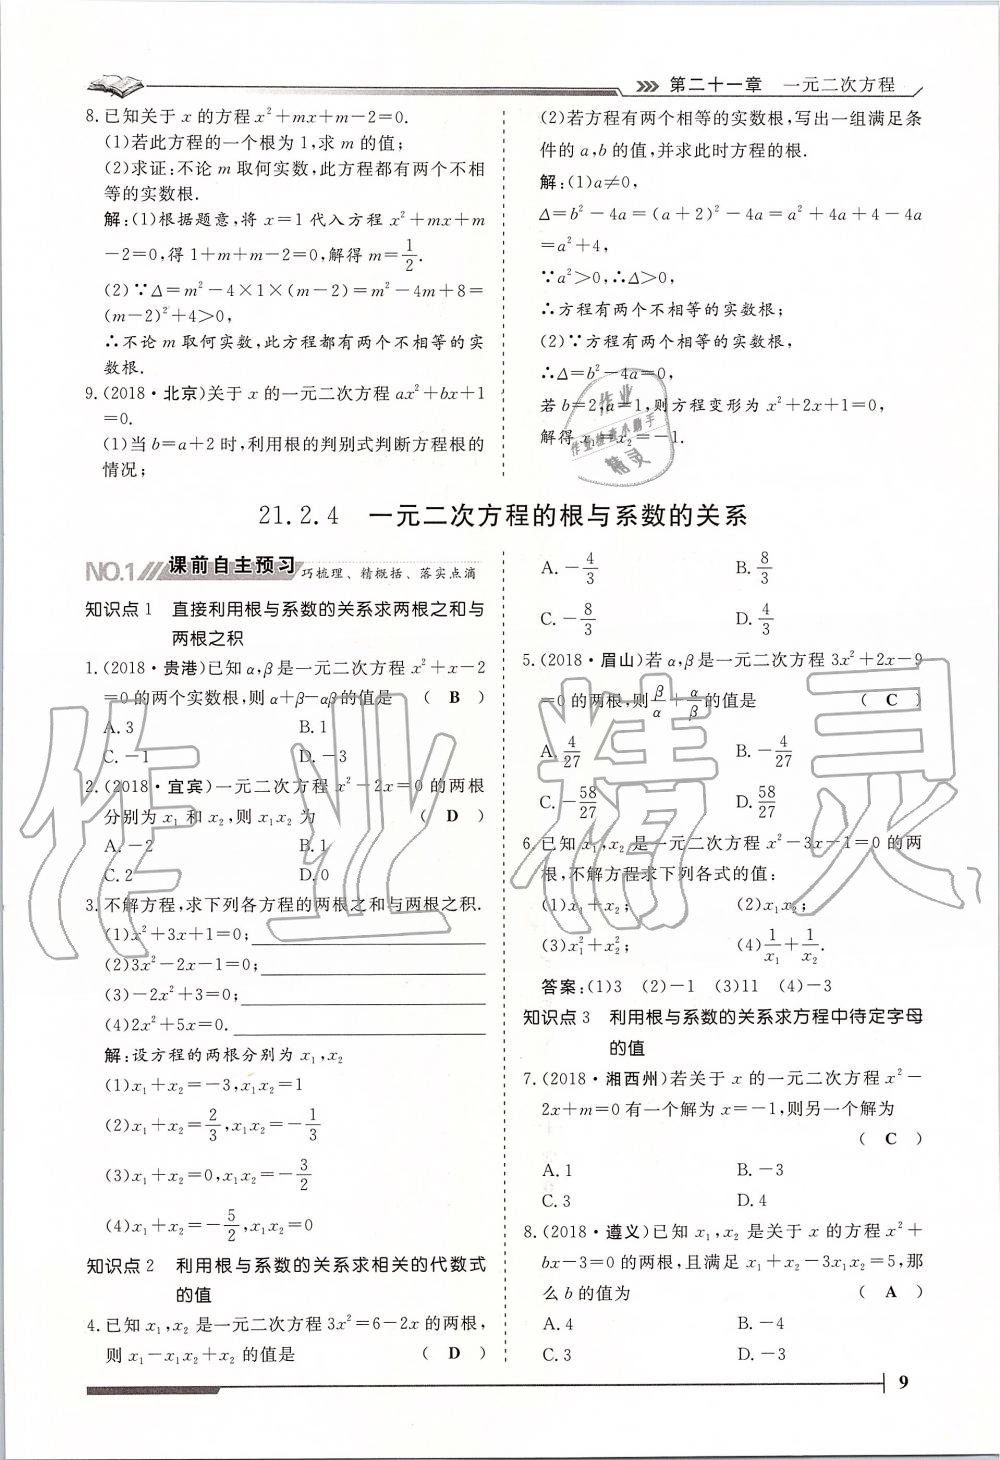 第二十一章　一元二次方程
8.已知关于 x 的方程 x²+mx+m-2=0.
(1)若此方程的一个根为 1,求 m 的值;
(2)求证:不论 m 取何实数,此方程都有两个不相
等的实数根.
解:(1)根据题意,将 x=1 代入方程 x²+mx+m
-2=0,得 1+m+m-2=0,解得 m=1/2.
(2)∵Δ=m²-4×1×(m-2)=m²-4m+8=
(m-2)²+4>0,
∴不论 m 取何实数,此方程都有两个不相等的实
数根.
9.(2018·北京)关于 x 的一元二次方程 ax²+bx+1
=0.
(1)当 b=a+2 时,利用根的判别式判断方程根的
情况;
(2)若方程有两个相等的实数根,写出一组满足条
件的 a,b 的值,并求此时方程的根.
解:(1)a≠0,
Δ=b²-4a=(a+2)²-4a=a²+4a+4-4a
=a²+4,
∵a²>0,∴Δ>0,
∴方程有两个不相等的实数根;
(2)∵方程有两个相等的实数根,
∴Δ=b²-4a=0,
若 b=2,a=1,则方程变形为 x²+2x+1=0,
解得 x₁=x₂=-1.
作业
作业检查小助手
精灵
21.2.4　一元二次方程的根与系数的关系
NO.1 课前自主预习 巧梳理、精概括、落实点滴
知识点 1　直接利用根与系数的关系求两根之和与
两根之积
1.(2018·贵港)已知 α,β 是一元二次方程 x²+x-2
=0 的两个实数根,则 α+β-αβ 的值是　( B )
A.3　B.1
C.-1　D.-3
2.(2018·宜宾)一元二次方程 x²-2x=0 的两根
分别为 x₁ 和 x₂,则 x₁x₂ 为　( D )
A.-2　B.1
C.2　D.0
3.不解方程,求下列各方程的两根之和与两根之积.
(1)x²+3x+1=0;
(2)3x²-2x-1=0;
(3)-2x²+3=0;
(4)2x²+5x=0.
解:设方程的两根分别为 x₁,x₂
(1)x₁+x₂=-3,x₁x₂=1
(2)x₁+x₂=2/3,x₁x₂=-1/3
(3)x₁+x₂=0,x₁x₂=-3/2
(4)x₁+x₂=-5/2,x₁x₂=0
知识点 2　利用根与系数的关系求相关的代数式
的值
4.已知 x₁,x₂ 是一元二次方程 3x²=6-2x 的两根,
则 x₁-x₁x₂+x₂ 的值是　( D )
A.-4/3　B.8/3
C.-8/3　D.4/3
5.(2018·眉山)若 α,β 是一元二次方程 3x²+2x-9
=0 的两根,则 β/α+α/β 的值是　( C )
A.4/27　B.-4/27
C.-58/27　D.58/27
6.已知 x₁,x₂ 是一元二次方程 x²-3x-1=0 的两
根,不解方程求下列各式的值:
(1)x₁+x₂;　(2)x₁x₂;
(3)x₁²+x₂²;　(4)1/x₁+1/x₂.
答案:(1)3　(2)-1　(3)11　(4)-3
知识点 3　利用根与系数的关系求方程中待定字母
的值
7.(2018·湘西州)若关于 x 的一元二次方程 x²-
2x+m=0 有一个解为 x=-1,则另一个解为
( C )
A.1　B.-3
C.3　D.4
8.(2018·遵义)已知 x₁,x₂ 是关于 x 的方程 x²+
bx-3=0 的两根,且满足 x₁+x₂-3x₁x₂=5,那
么 b 的值为　( A )
A.4　B.-4
C.3　D.-3
作业精灵
9